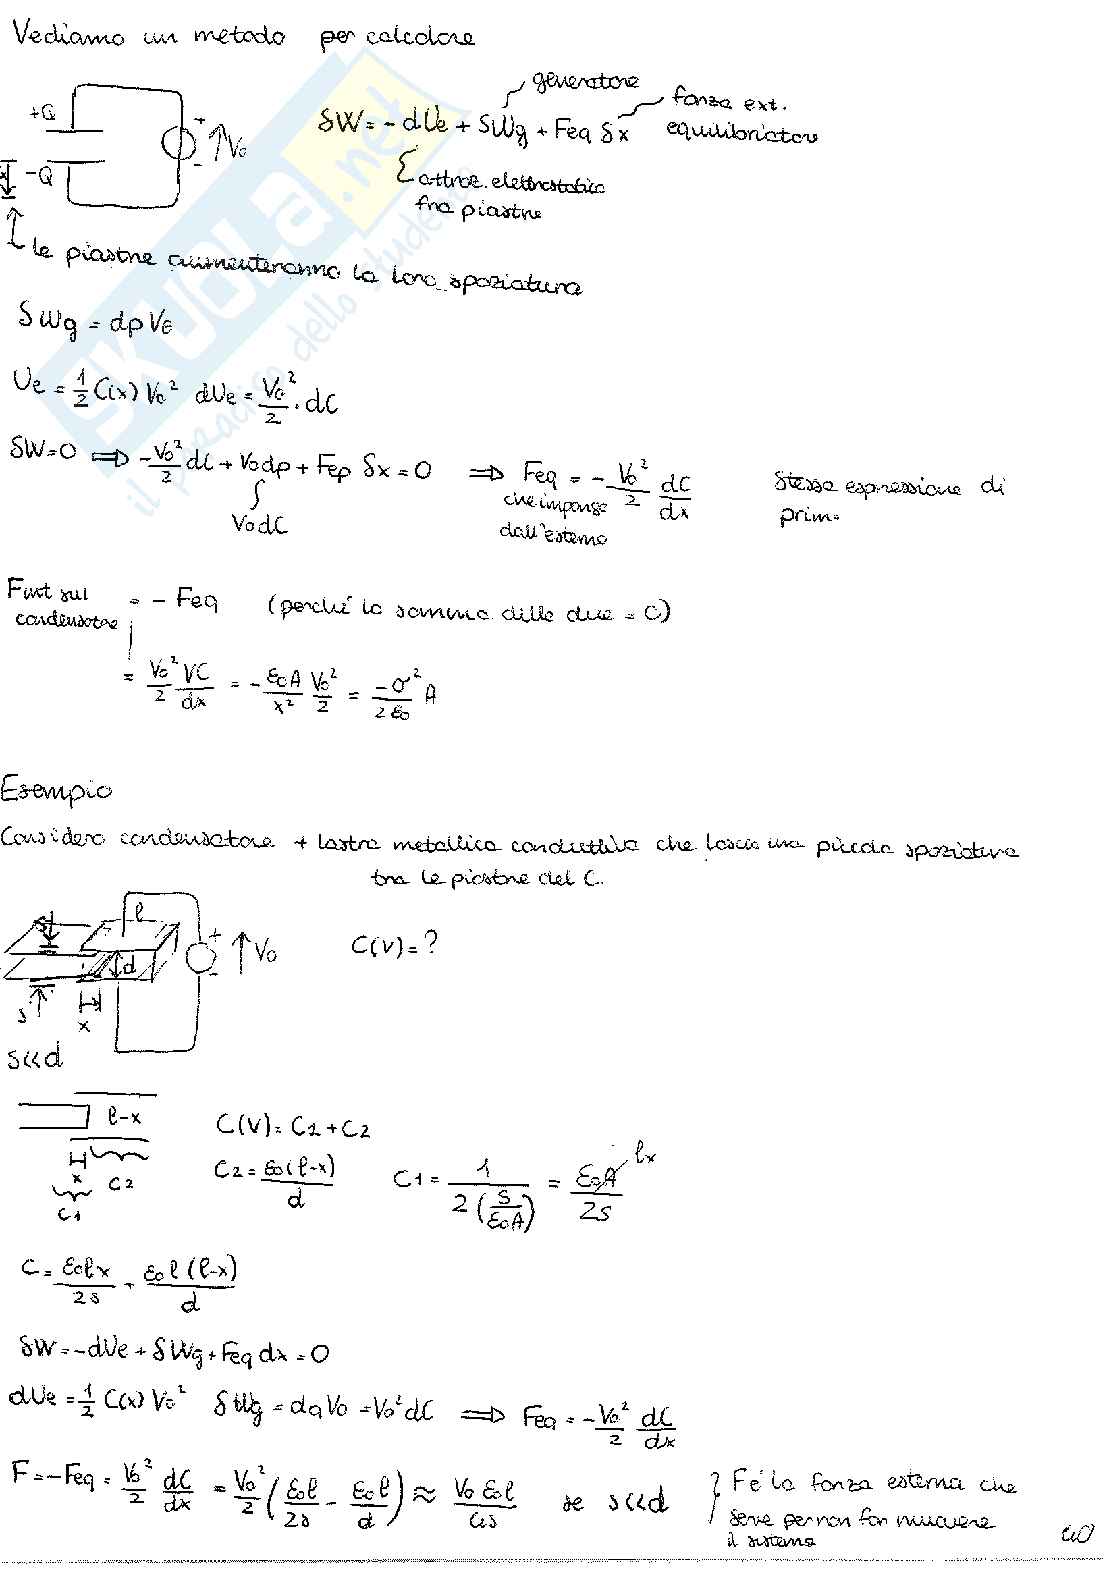 Vediamo un metodo per calcolare
+Q
-Q
+
-
V₀
x
generatore
forza ext. equilibriatore
δW = - dUe + δWg + Feq δx
attraz. elettrostatica
fra piastre
le piastre aumenteranno la loro spaziatura
δWg = dp V₀
Ue = 1/2 C(x) V₀² dUe = V₀²/2 · dC
δW=0 ⟹ -V₀²/2 dC + V₀dp + Feq δx = 0 ⟹ Feq = - V₀²/2 dC/dx
V₀dC
che impongo
dall'esterno
Stessa espressione di
prima
Fint sul
condensatore
= - Feq (perché la somma delle due = 0)
= V₀²/2 VC/dx = - ε₀A/x² V₀²/2 = -σ²/2ε₀ A
Esempio
Considero condensatore + lastra metallica conduttiva che lascia una piccola spaziatura
tra le piastre del C.
l
d
s
x
+
-
V₀
C(V) = ?
s<<d
l-x
x
C2
C1
C(V) = C2 + C2
C2 = ε₀(l-x)/d
C1 = 1/(2(s/ε₀A)) = ε₀A/2s
lx
C = ε₀lx/2s + ε₀l(l-x)/d
δW = -dUe + δWg + Feq dx = 0
dUe = 1/2 C(x) V₀² δWg = dq V₀ = V₀² dC ⟹ Feq = - V₀²/2 dC/dx
F = -Feq = V₀²/2 dC/dx = V₀²/2 (ε₀l/2s - ε₀l/d) ≈ V₀ ε₀l/4s se s<<d
F è la forza esterna che
serve per non far muovere
il sistema
40
SKUOLA.net
il paradiso dello studente